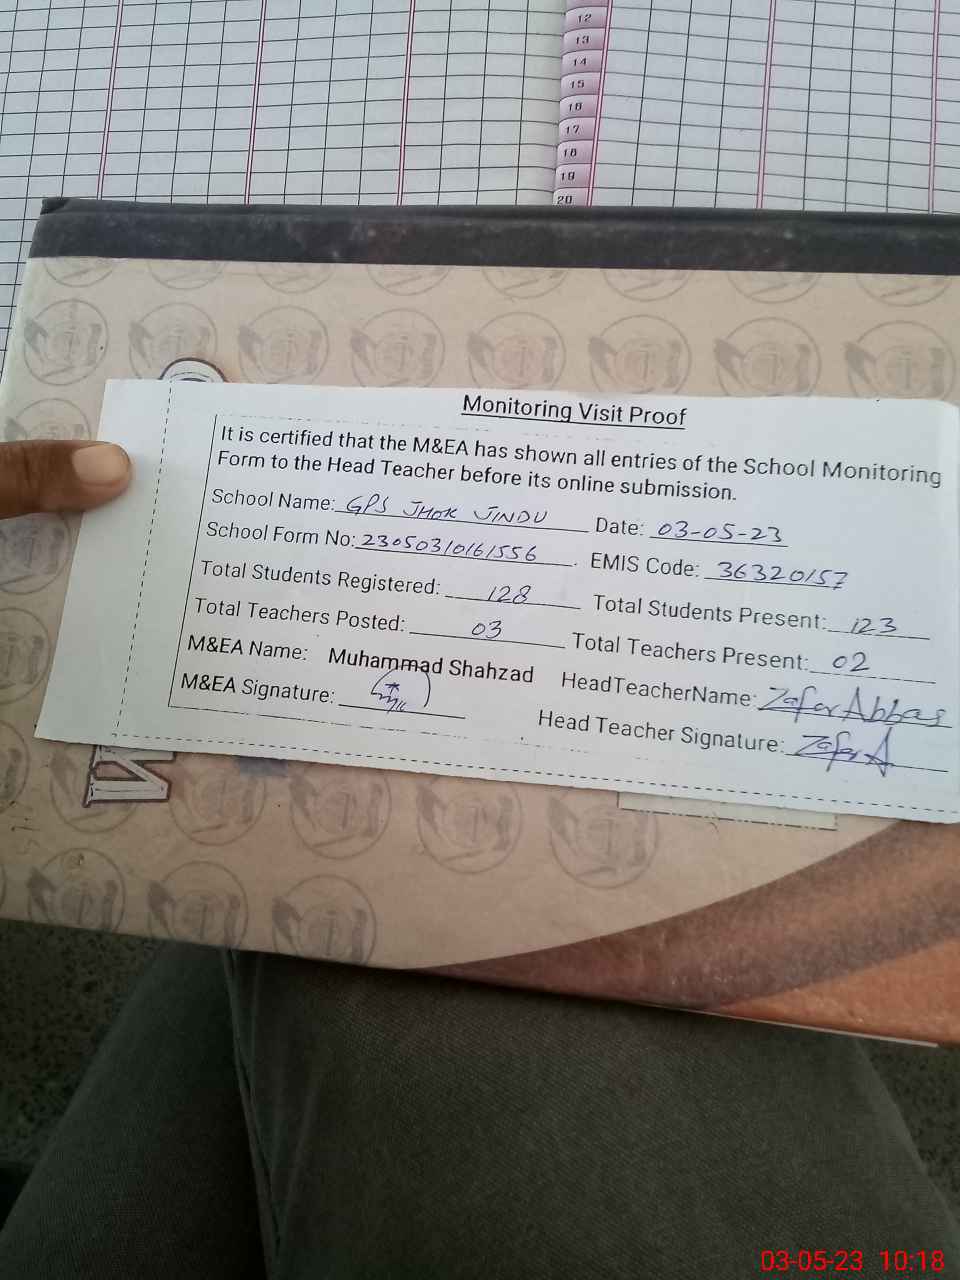 12
13
14
15
16
17
18
19
20
Monitoring Visit Proof
It is certified that the M&EA has shown all entries of the School Monitoring
Form to the Head Teacher before its online submission.
School Name: GPS JHOK JINDU Date: 03-05-23
School Form No: 23050310161556 EMIS Code: 36320157
Total Students Registered: 128 Total Students Present: 123
Total Teachers Posted: 03 Total Teachers Present: 02
M&EA Name: Muhammad Shahzad HeadTeacherName: Zafar Abbas
M&EA Signature: Head Teacher Signature: Zafar A
03-05-23 10:18